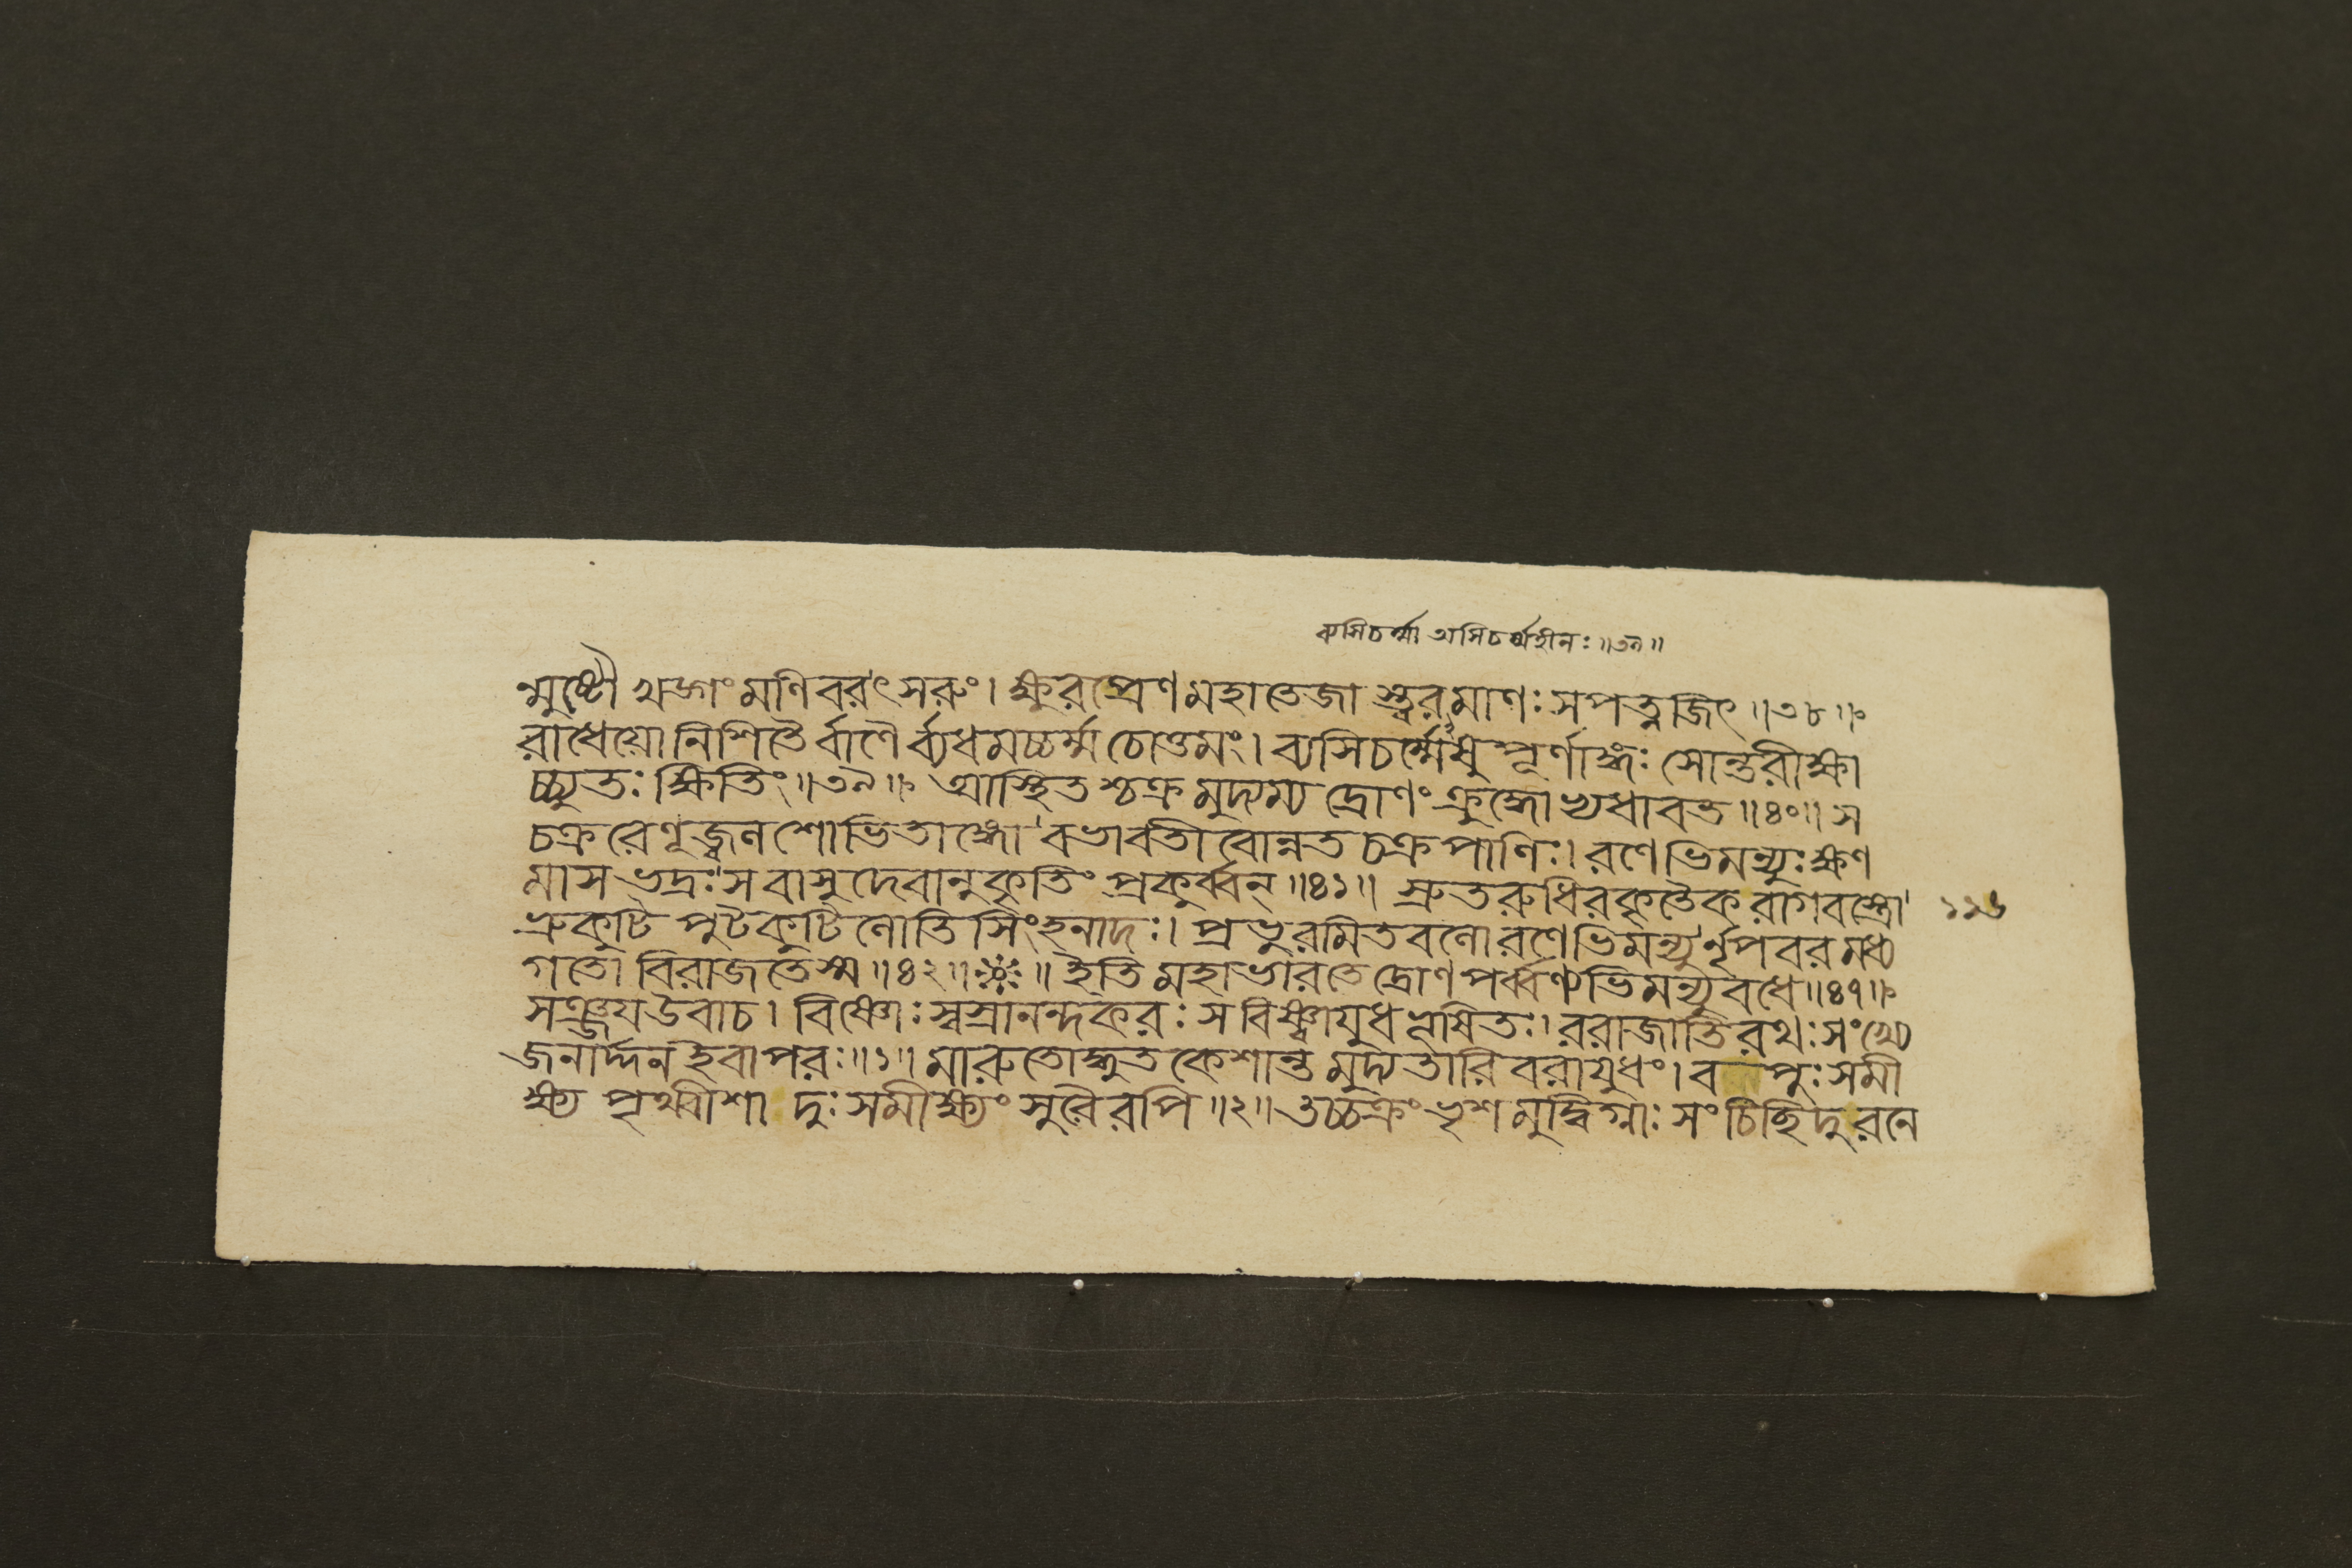 ব্যসিচর্ম্মা অসিচর্ম্মহীনঃ ॥৩৯॥
ন্মুষ্টৌ খড়্গং মণিবরৎসরুং। ক্ষুরপ্রেণ মহাতেজা স্ত্বরমাণঃ সপত্নজিৎ ॥৩৮॥
রাধেয়ো নিশিতৈর্বাণৈর্ব্যধমচ্চর্ম্ম চোত্তমং। ব্যসিচর্ম্মেষু পূর্ণাঙ্গঃ সোন্তরীক্ষা
চ্চ্যুতঃ ক্ষিতিং ॥৩৯॥ আস্থিতশ্চক্রমুদ্যম্য দ্রোণং ক্রুদ্ধোভ্যধাবত ॥৪০॥ স
চক্ররেণূজ্জ্বলশোভিতাঙ্গো বভাবতীবোন্নতচক্রপাণিঃ। রণেভিমন্যুঃ ক্ষণ
মাসভদ্রঃ স বাসুদেবানুকৃতিং প্রকুর্ব্বন্ ॥৪১॥ স্রুতরুধিরকৃতৈকরাগবস্ত্রো
ভ্রুকুটিপুটকুটিলোতিসিংহনাদঃ। প্রভুরমিতবলো রণেভিমন্যুর্নৃপবরমধ্য
গতো বিরাজতে স্ম ॥৪২॥ ॥ ইতি মহাভারতে দ্রোণপর্ব্বণ্যভিমন্যুবধে ॥৪৭॥
সঞ্জয় উবাচ। বিষ্ণোঃ স্বস্রানন্দকরঃ স বিষ্ণ্বায়ুধভূষিতঃ। ররাজাতিরথঃ সংখ্যে
জনার্দ্দন ইবাপরঃ ॥১॥ মারুতোদ্ধূতকেশান্তমুদ্যতারিবরায়ুধং। বপুঃ সমী
ক্ষ্য পৃথ্বীশা দুঃসমীক্ষ্যং সুরৈরপি ॥২॥ তচ্চক্রং ভৃশমুদ্বিগ্নাঃ সংচিচ্ছিদুরনে
১১৬